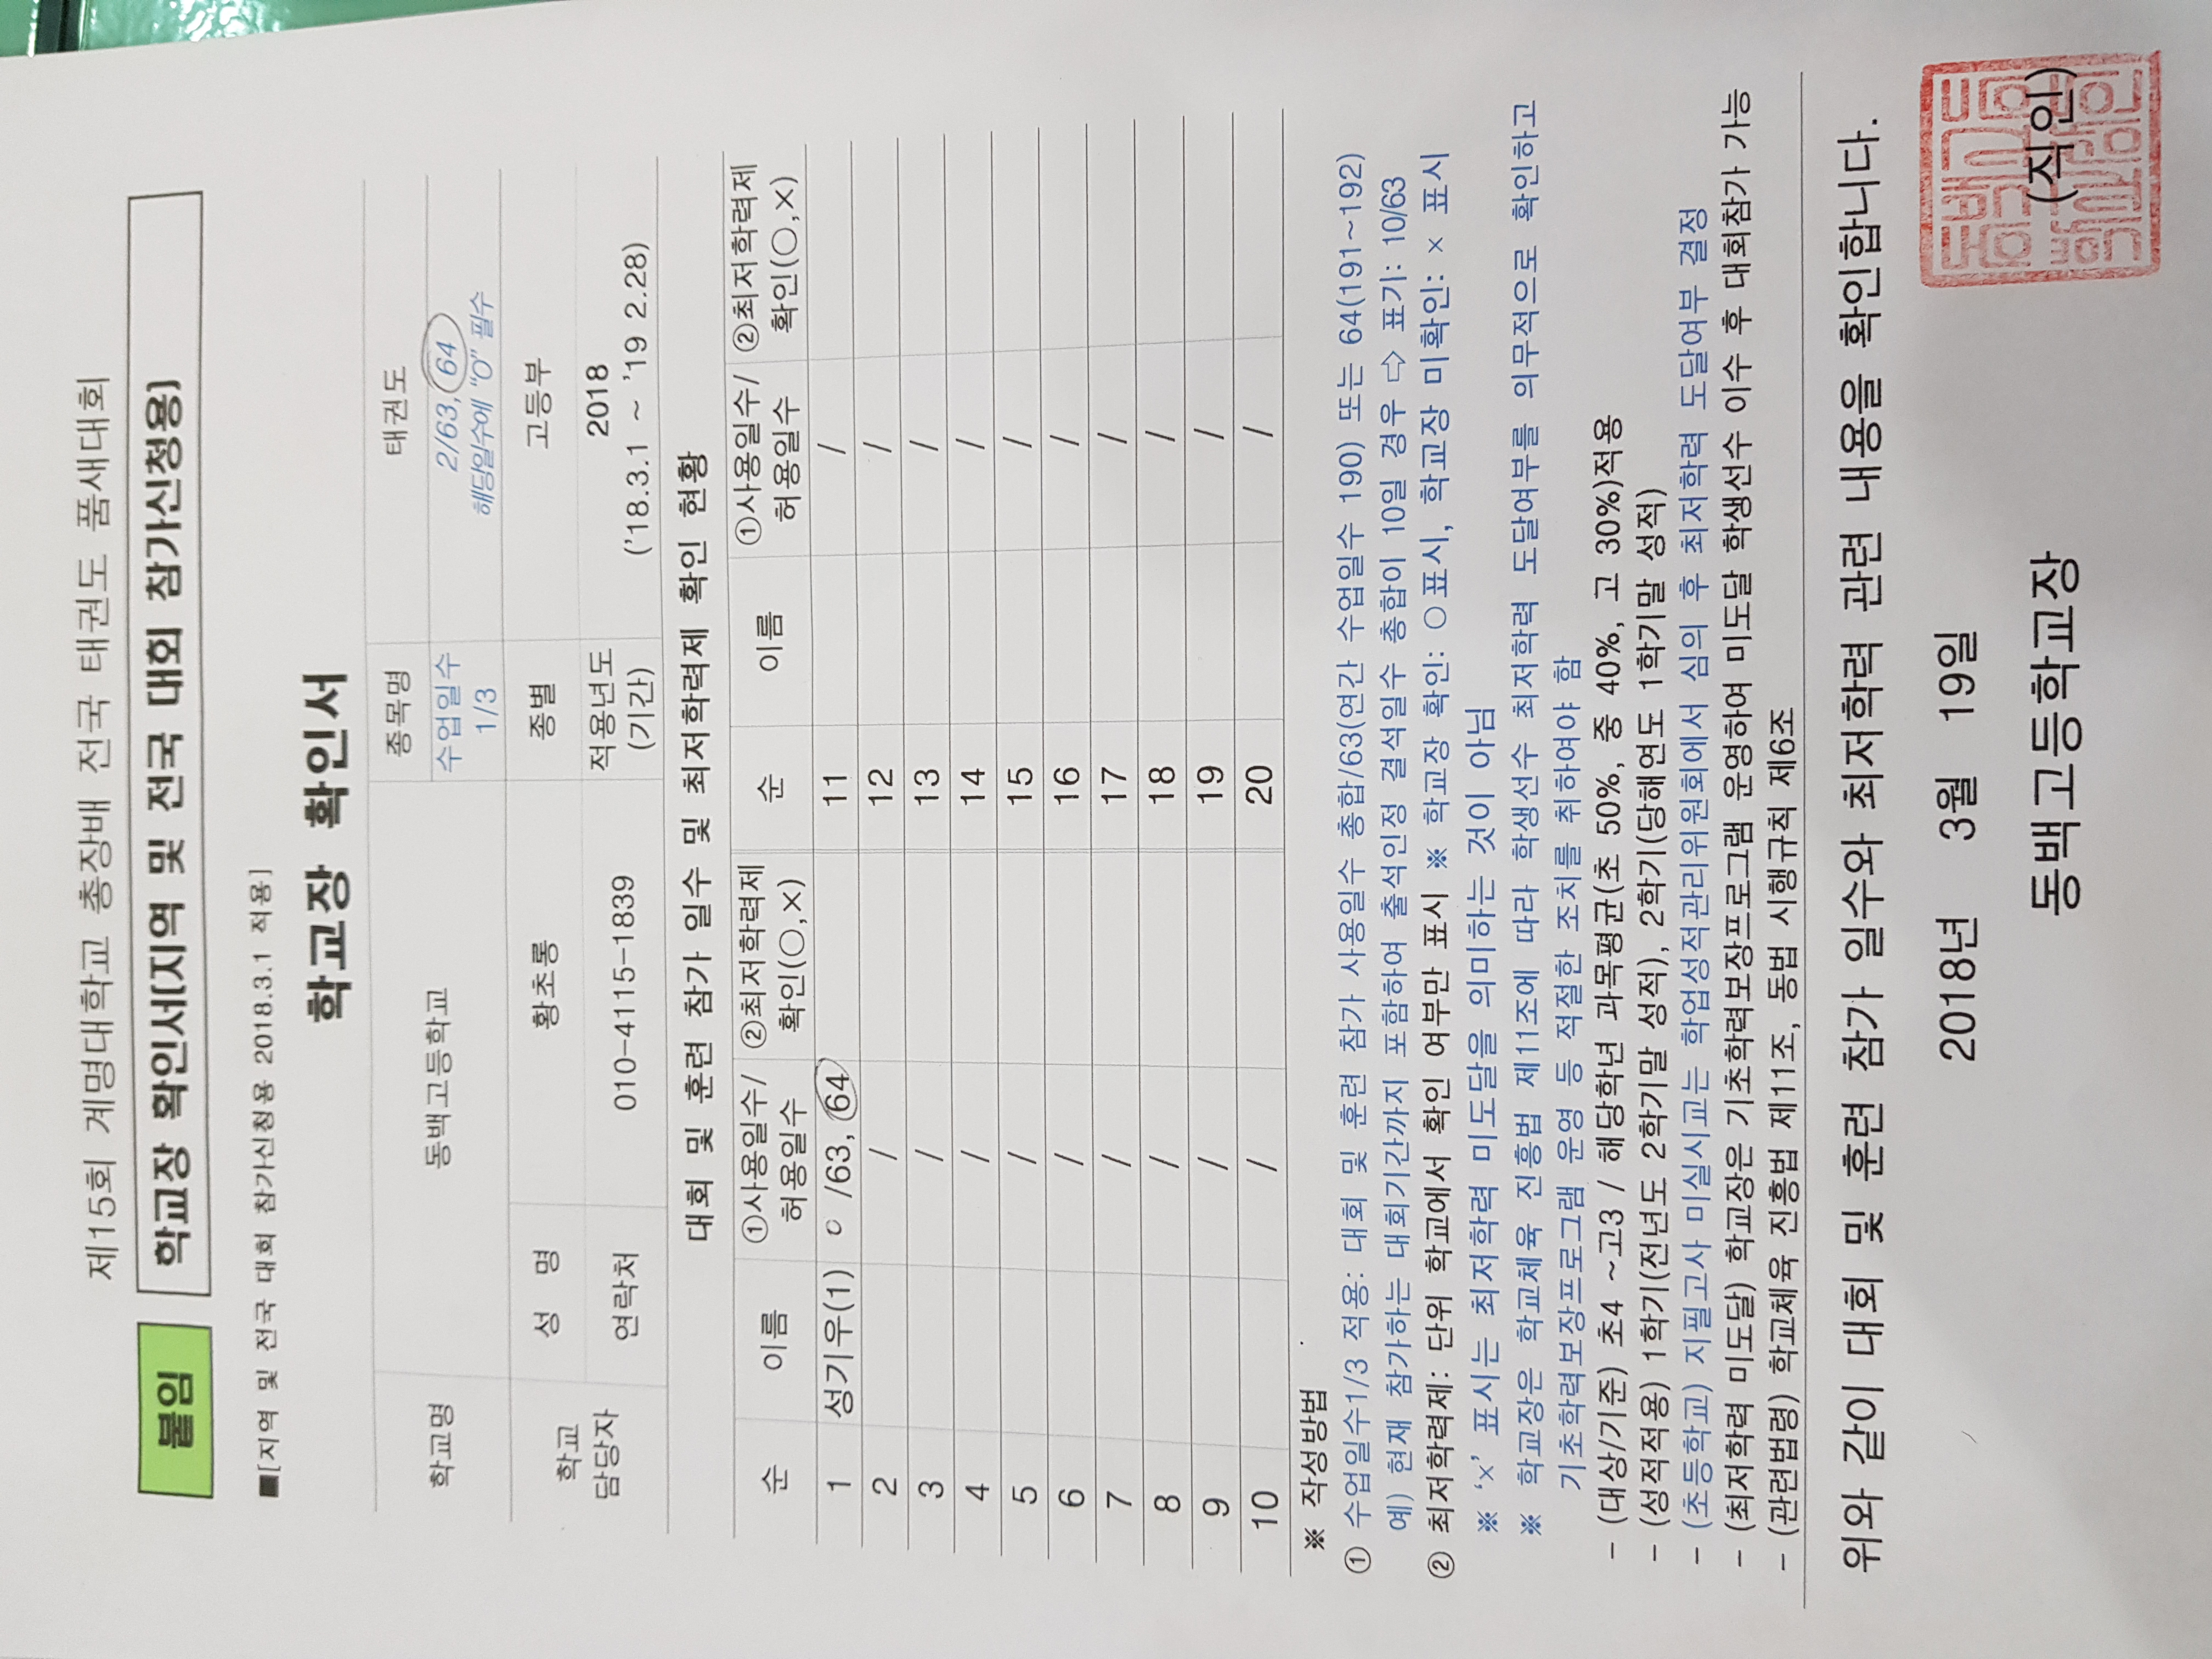 제15회 계명대학교 총장배 전국 태권도 품새대회
붙임 학교장 확인서(지역 및 전국 대회 참가신청용)
■[지역 및 전국 대회 참가신청용 2018.3.1 적용]
학교장 확인서
학교명 동백고등학교 종목명 태권도
수업일수 1/3 2/63, 64 해당일수에 "O" 필수
학교 담당자 성 명 황초롱 종별 고등부
연락처 010-4115-1839 적용년도 (기간) 2018 ('18.3.1 ~ '19 2.28)
대회 및 훈련 참가 일수 및 최저학력제 확인 현황
순 이름 ①사용일수/허용일수 ②최저학력제 확인(○,×) 순 이름 ①사용일수/허용일수 ②최저학력제 확인(○,×)
1 성기우(1) 0 /63, 64 11 /
2 / 12 /
3 / 13 /
4 / 14 /
5 / 15 /
6 / 16 /
7 / 17 /
8 / 18 /
9 / 19 /
10 / 20 /
※ 작성방법
① 수업일수1/3 적용: 대회 및 훈련 참가 사용일수 총합/63(연간 수업일수 190) 또는 64(191~192)
예) 현재 참가하는 대회기간까지 포함하여 출석인정 결석일수 총합이 10일 경우 ⇨ 표기: 10/63
② 최저학력제: 단위 학교에서 확인 여부만 표시 ※ 학교장 확인: ○표시, 학교장 미확인: × 표시
※ '×' 표시는 최저학력 미도달을 의미하는 것이 아님
※ 학교장은 학교체육 진흥법 제11조에 따라 학생선수 최저학력 도달여부를 의무적으로 확인하고
기초학력보장프로그램 운영 등 적절한 조치를 취하여야 함
- (대상/기준) 초4 ~고3 / 해당학년 과목평균(초 50%, 중 40%, 고 30%)적용
- (성적적용) 1학기(전년도 2학기말 성적), 2학기(당해연도 1학기말 성적)
- (초등학교) 지필고사 미실시교는 학업성적관리위원회에서 심의 후 최저학력 도달여부 결정
- (최저학력 미도달) 학교장은 기초학력보장프로그램 운영하여 미도달 학생선수 이수 후 대회참가 가능
- (관련법령) 학교체육 진흥법 제11조, 동법 시행규칙 제6조
위와 같이 대회 및 훈련 참가 일수와 최저학력 관련 내용을 확인합니다.
2018년 3월 19일
동백고등학교장 (직인)